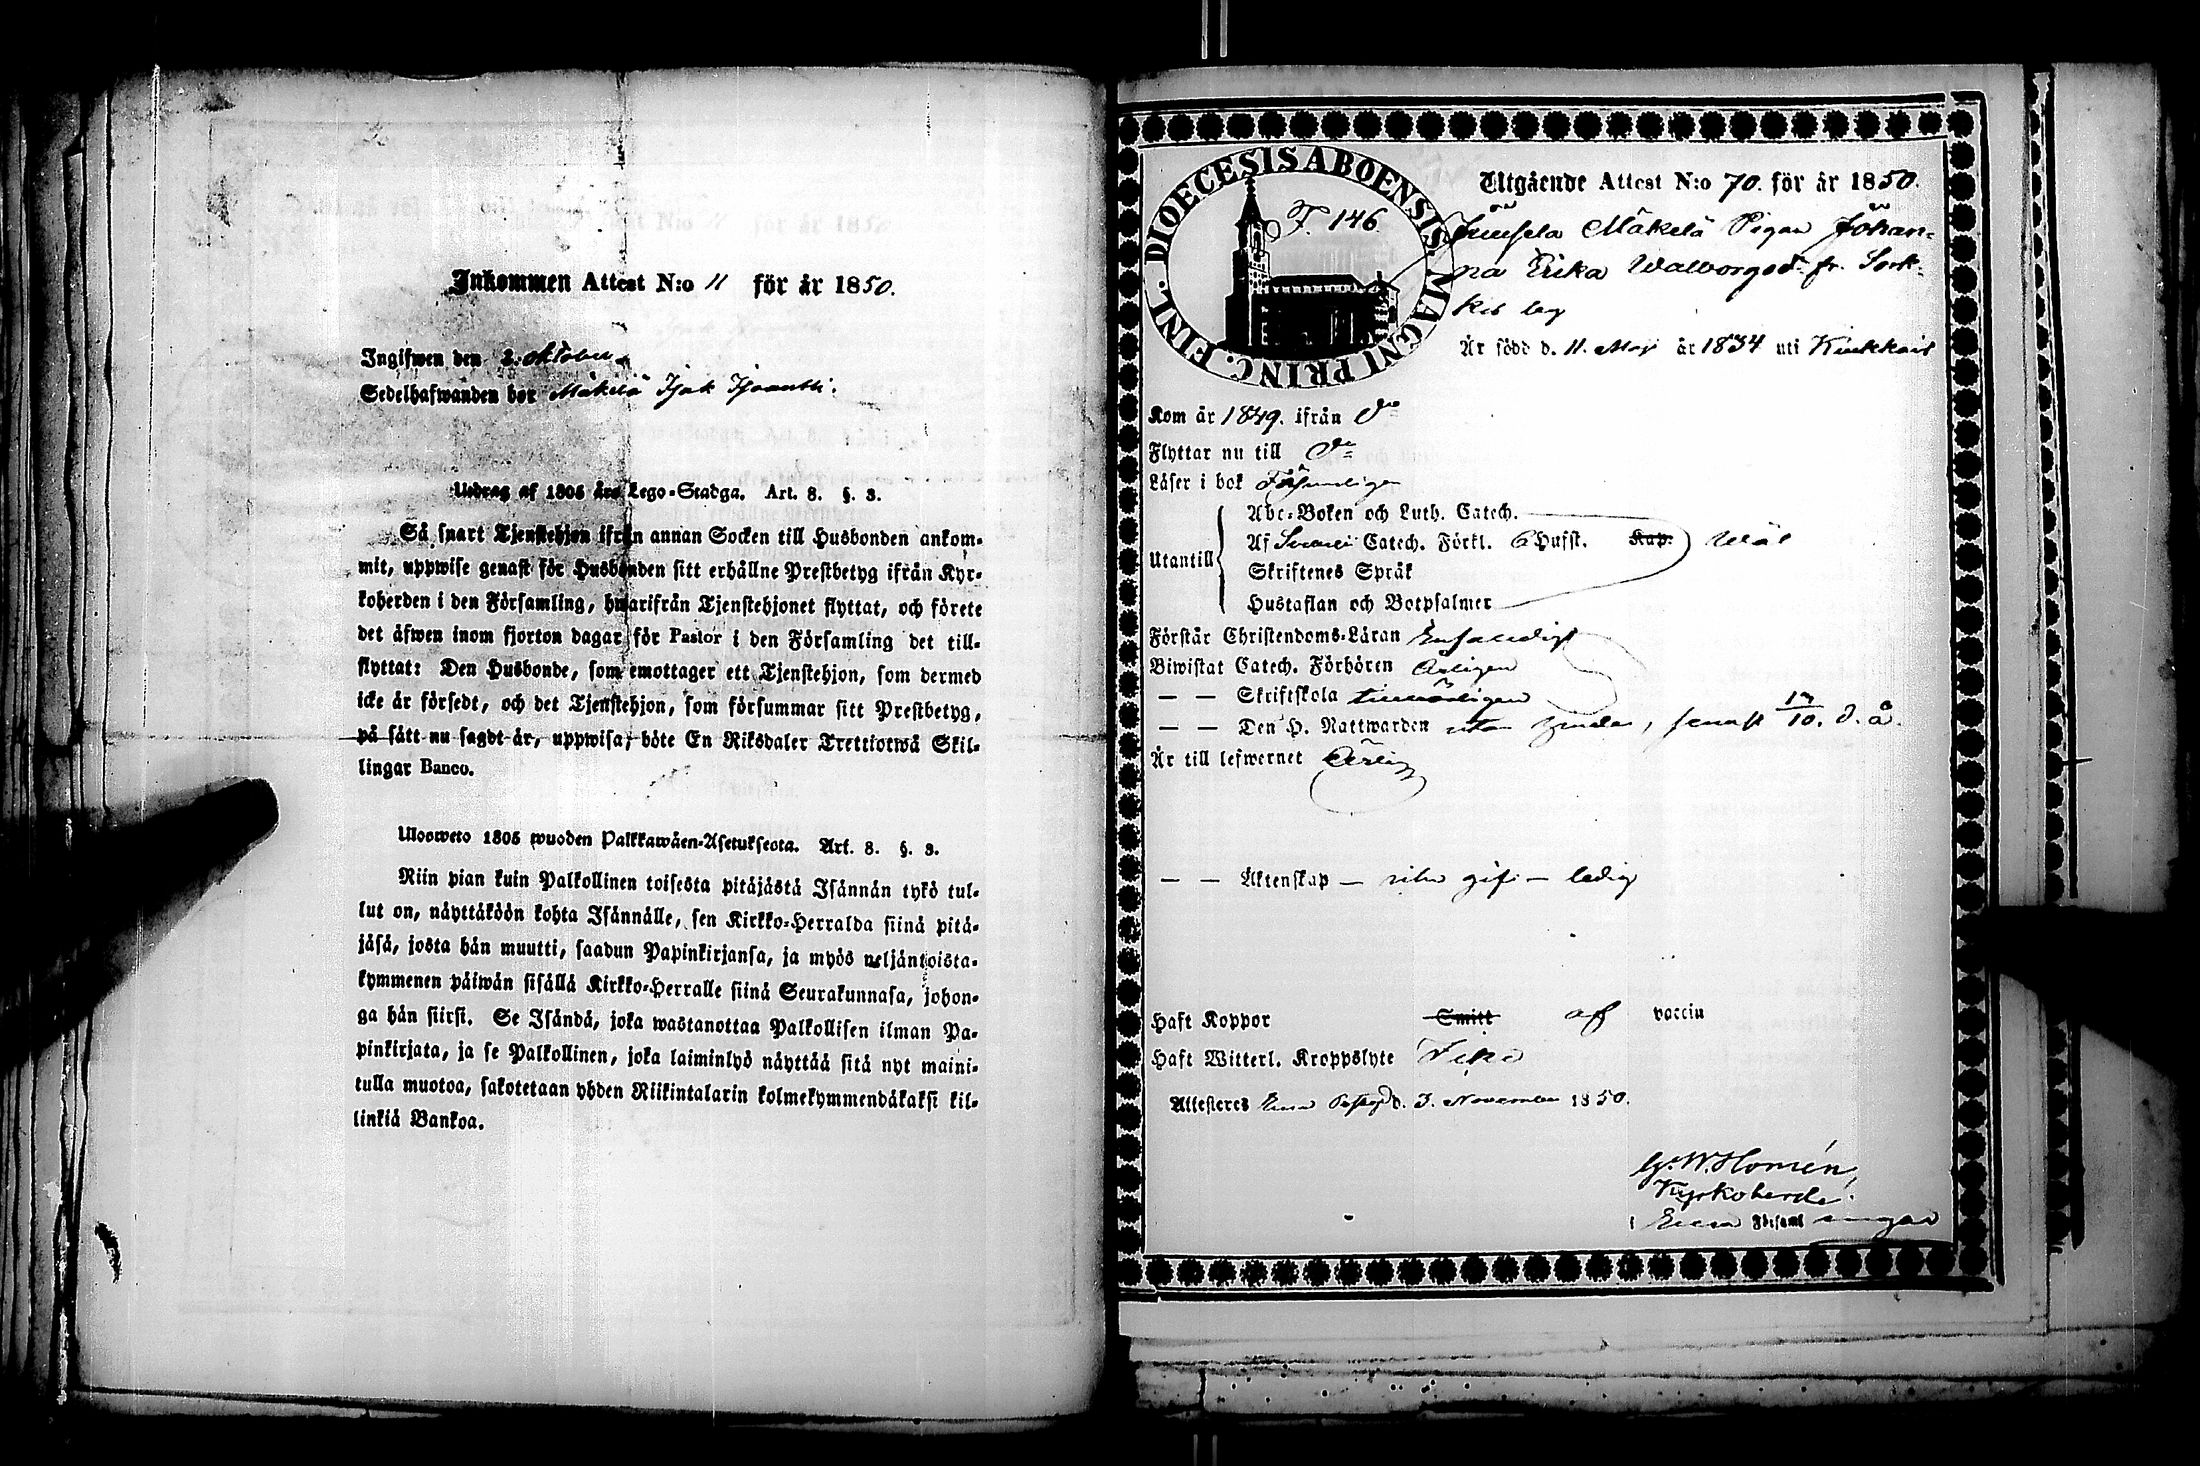 Inkommen Attest N:o 11 för år 1850.
Ingifwen den 2. oktober
Sedelhafwanden bor Mäkelä Isak
Utdrag af 1805 års Lego-Stadga. Art. 8. §. 3.
Så snart Tjenstehjon ifrån annan Socken till Husbonden ankom-
mit, uppwise genast för Husbonden sitt erhållne Prestbetyg ifrån Kyr-
koherden i den Församling, hwarifrån Tjenstehjonet flyttat, och förete
det äfwen inom fjorton dagar för Pastor i den Församling det till-
flyttat: Den Husbonde, som emottager ett Tjenstehjon, som dermed
icke är försedt, och det Tjenstehjon, som försummar sitt Prestbetyg,
på sätt nu sagdt är, uppwisa, böte En Riksdaler Trettiotwå Skil-
lingar Banco.
Ulosweto 1805 wuoden Palkkawäen-Asetuksesta. Art. 8. §. 3.
Niin pian kuin Palkollinen toisesta pitäjästä Isännän tykö tul-
lut on, näyttäköön kohta Isännälle, sen Kirkko-Herralda siinä pitä-
jäsä, josta hän muutti, saadun Papinkirjansa, ja myös neljäntoista-
kymmenen päiwän sisällä Kirkko-Herralle siinä Seurakunnasa, johon-
ga hän siirsi. Se Isändä, joka wastanottaa Palkollisen ilman Pa-
pinkirjata, ja se Palkollinen, joka laiminlyö näyttää sitä nyt maini-
tulla muotoa, sakotetaan yhden Riikintalarin kolmekymmendäkaksi kil-
linkiä Bankoa.
DIOECESIS ABOENSIS MAGNI PRINC. FINL.
F. 146
Utgående Attest N:o 70. för år 1850.
Mäkelä Pigan Johan-
na Erika Walborgsd:r fr. Sork-
kis by
Är född d. 11. Maji år 1834 uti Kiukkais
Kom år 1849. ifrån D:o
Flyttar nu till D:o
Läser i bok Försvarligen
Utantill
Abc-Boken och Luth. Catech.
Af Svebelii Catech. Förkl. 6 Hufst. Kap. Wäl
Skriftenes Språk
Hustaflan och Botpsalmer
Förstår Christendoms-Läran Enfaldigt
Biwistat Catech. Förhören Årligen
— — Skriftskola
— — Den H. Nattwarden utan hinder, senast 17/10. d. å.
Är till lefwernet Ärlig
— — Äktenskap — icke gift — ledig
Haft Koppor Smitt af vaccin
Haft Witterl. Kroppslyte Icke
Attesteres Eura d. 3. November 1850.
G. W. Homén,
Kyrkoherde
i Eura Församlingar